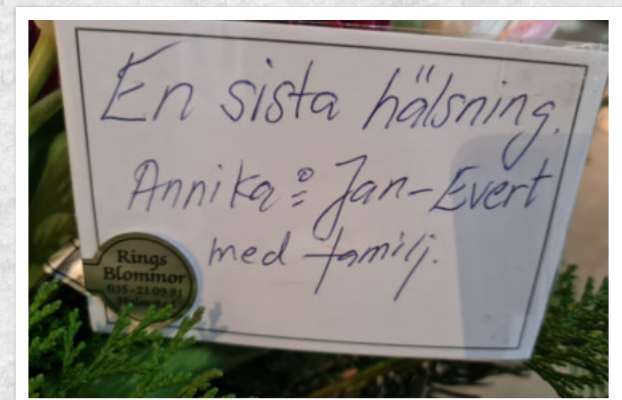 En sista hälsning.
Annika & Jan-Evert
med familj.
Rings
Blommor
035-21 09 91
Halmstad